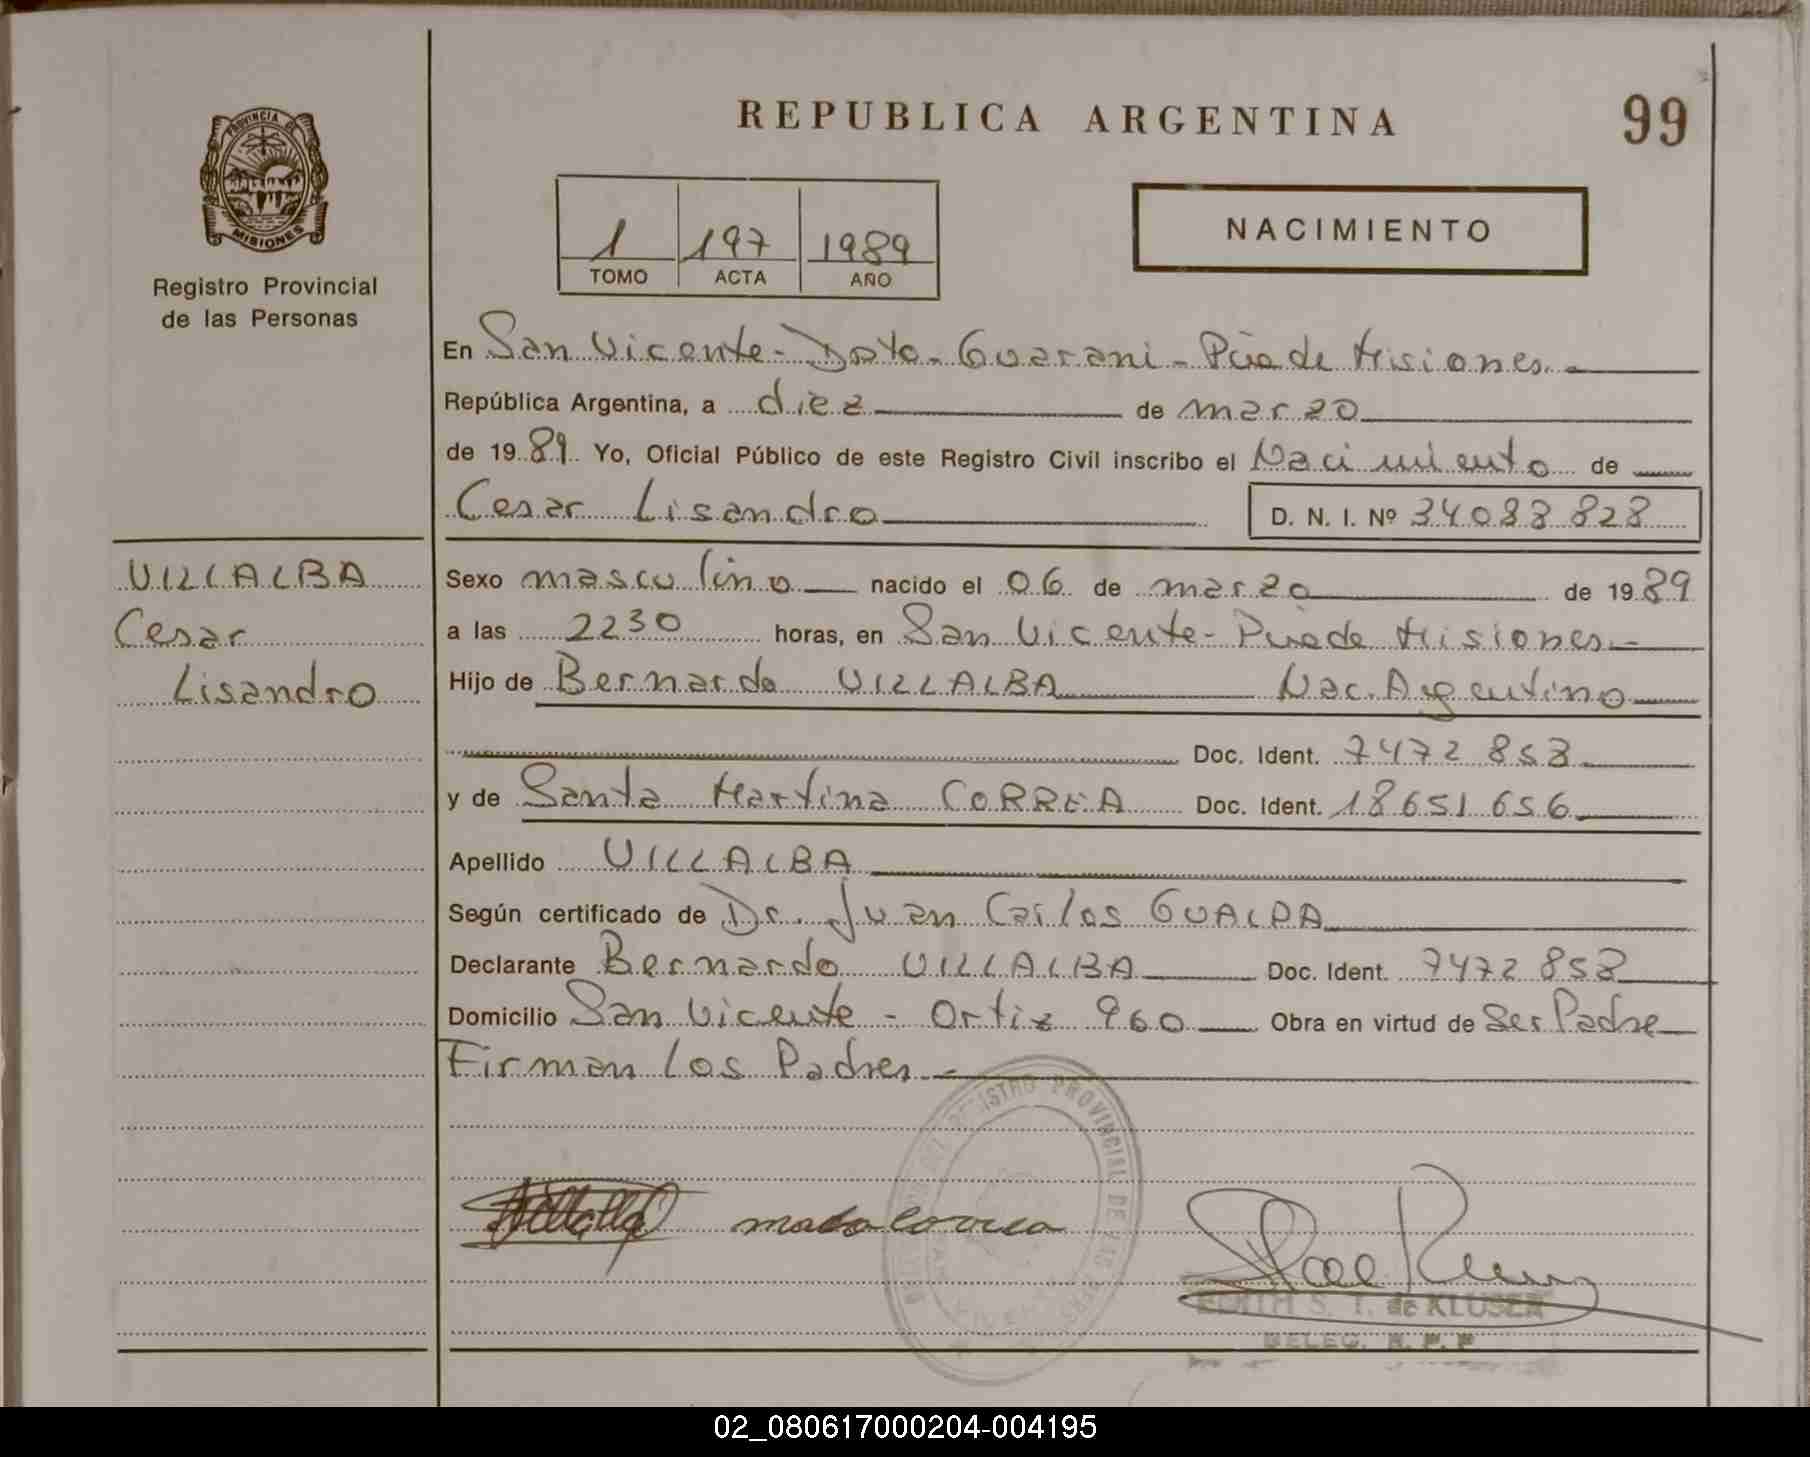 REPUBLICA ARGENTINA
99
PROVINCIA DE
MISIONES
Registro Provincial
de las Personas
1 197 1989
TOMO ACTA AÑO
NACIMIENTO
En San Vicente - Dpto - Guarani - Pcia de Misiones
República Argentina, a diez de marzo
de 1989 Yo, Oficial Público de este Registro Civil inscribo el Nacimiento de
Cesar Lisandro D. N. I. Nº 34083828
VILLALBA
Cesar
Lisandro
Sexo masculino nacido el 06 de marzo de 1989
a las 2230 horas, en San Vicente - Pcia de Misiones
Hijo de Bernardo VILLALBA Nac. Argentino
Doc. Ident. 7472858
y de Santa Martina CORREA Doc. Ident. 18651656
Apellido VILLALBA
Según certificado de Dr. Juan Carlos GUALDA
Declarante Bernardo VILLALBA Doc. Ident. 7472858
Domicilio San Vicente - Ortiz 960 Obra en virtud de Ser Padre
Firman los Padres
REGISTRO PROVINCIAL DE LAS PERSONAS
EDITH S. T. de KLUSER
DELEG. R. P. P
02_080617000204-004195